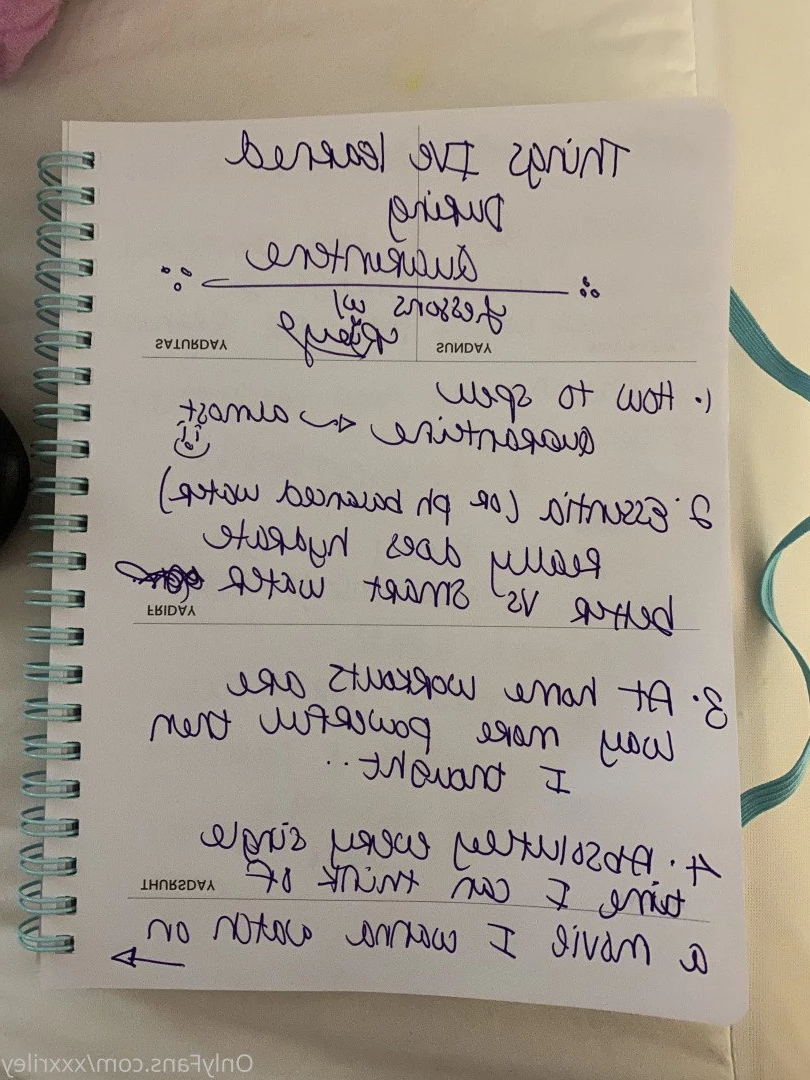 Things I've learned
During
Quaruntene
Lessons w/
Riley
SUNDAY SATURDAY
1. How to spell
Quarantine almost
2. Essentia (or ph balanced water)
really does hydrate
better vs smart water
FRIDAY
3. At home workouts are
way more powerful then
I thought..
4. Absolutley every single
time I can think of
THURSDAY
a movie I wanna watch on
OnlyFans.com/xxxriley